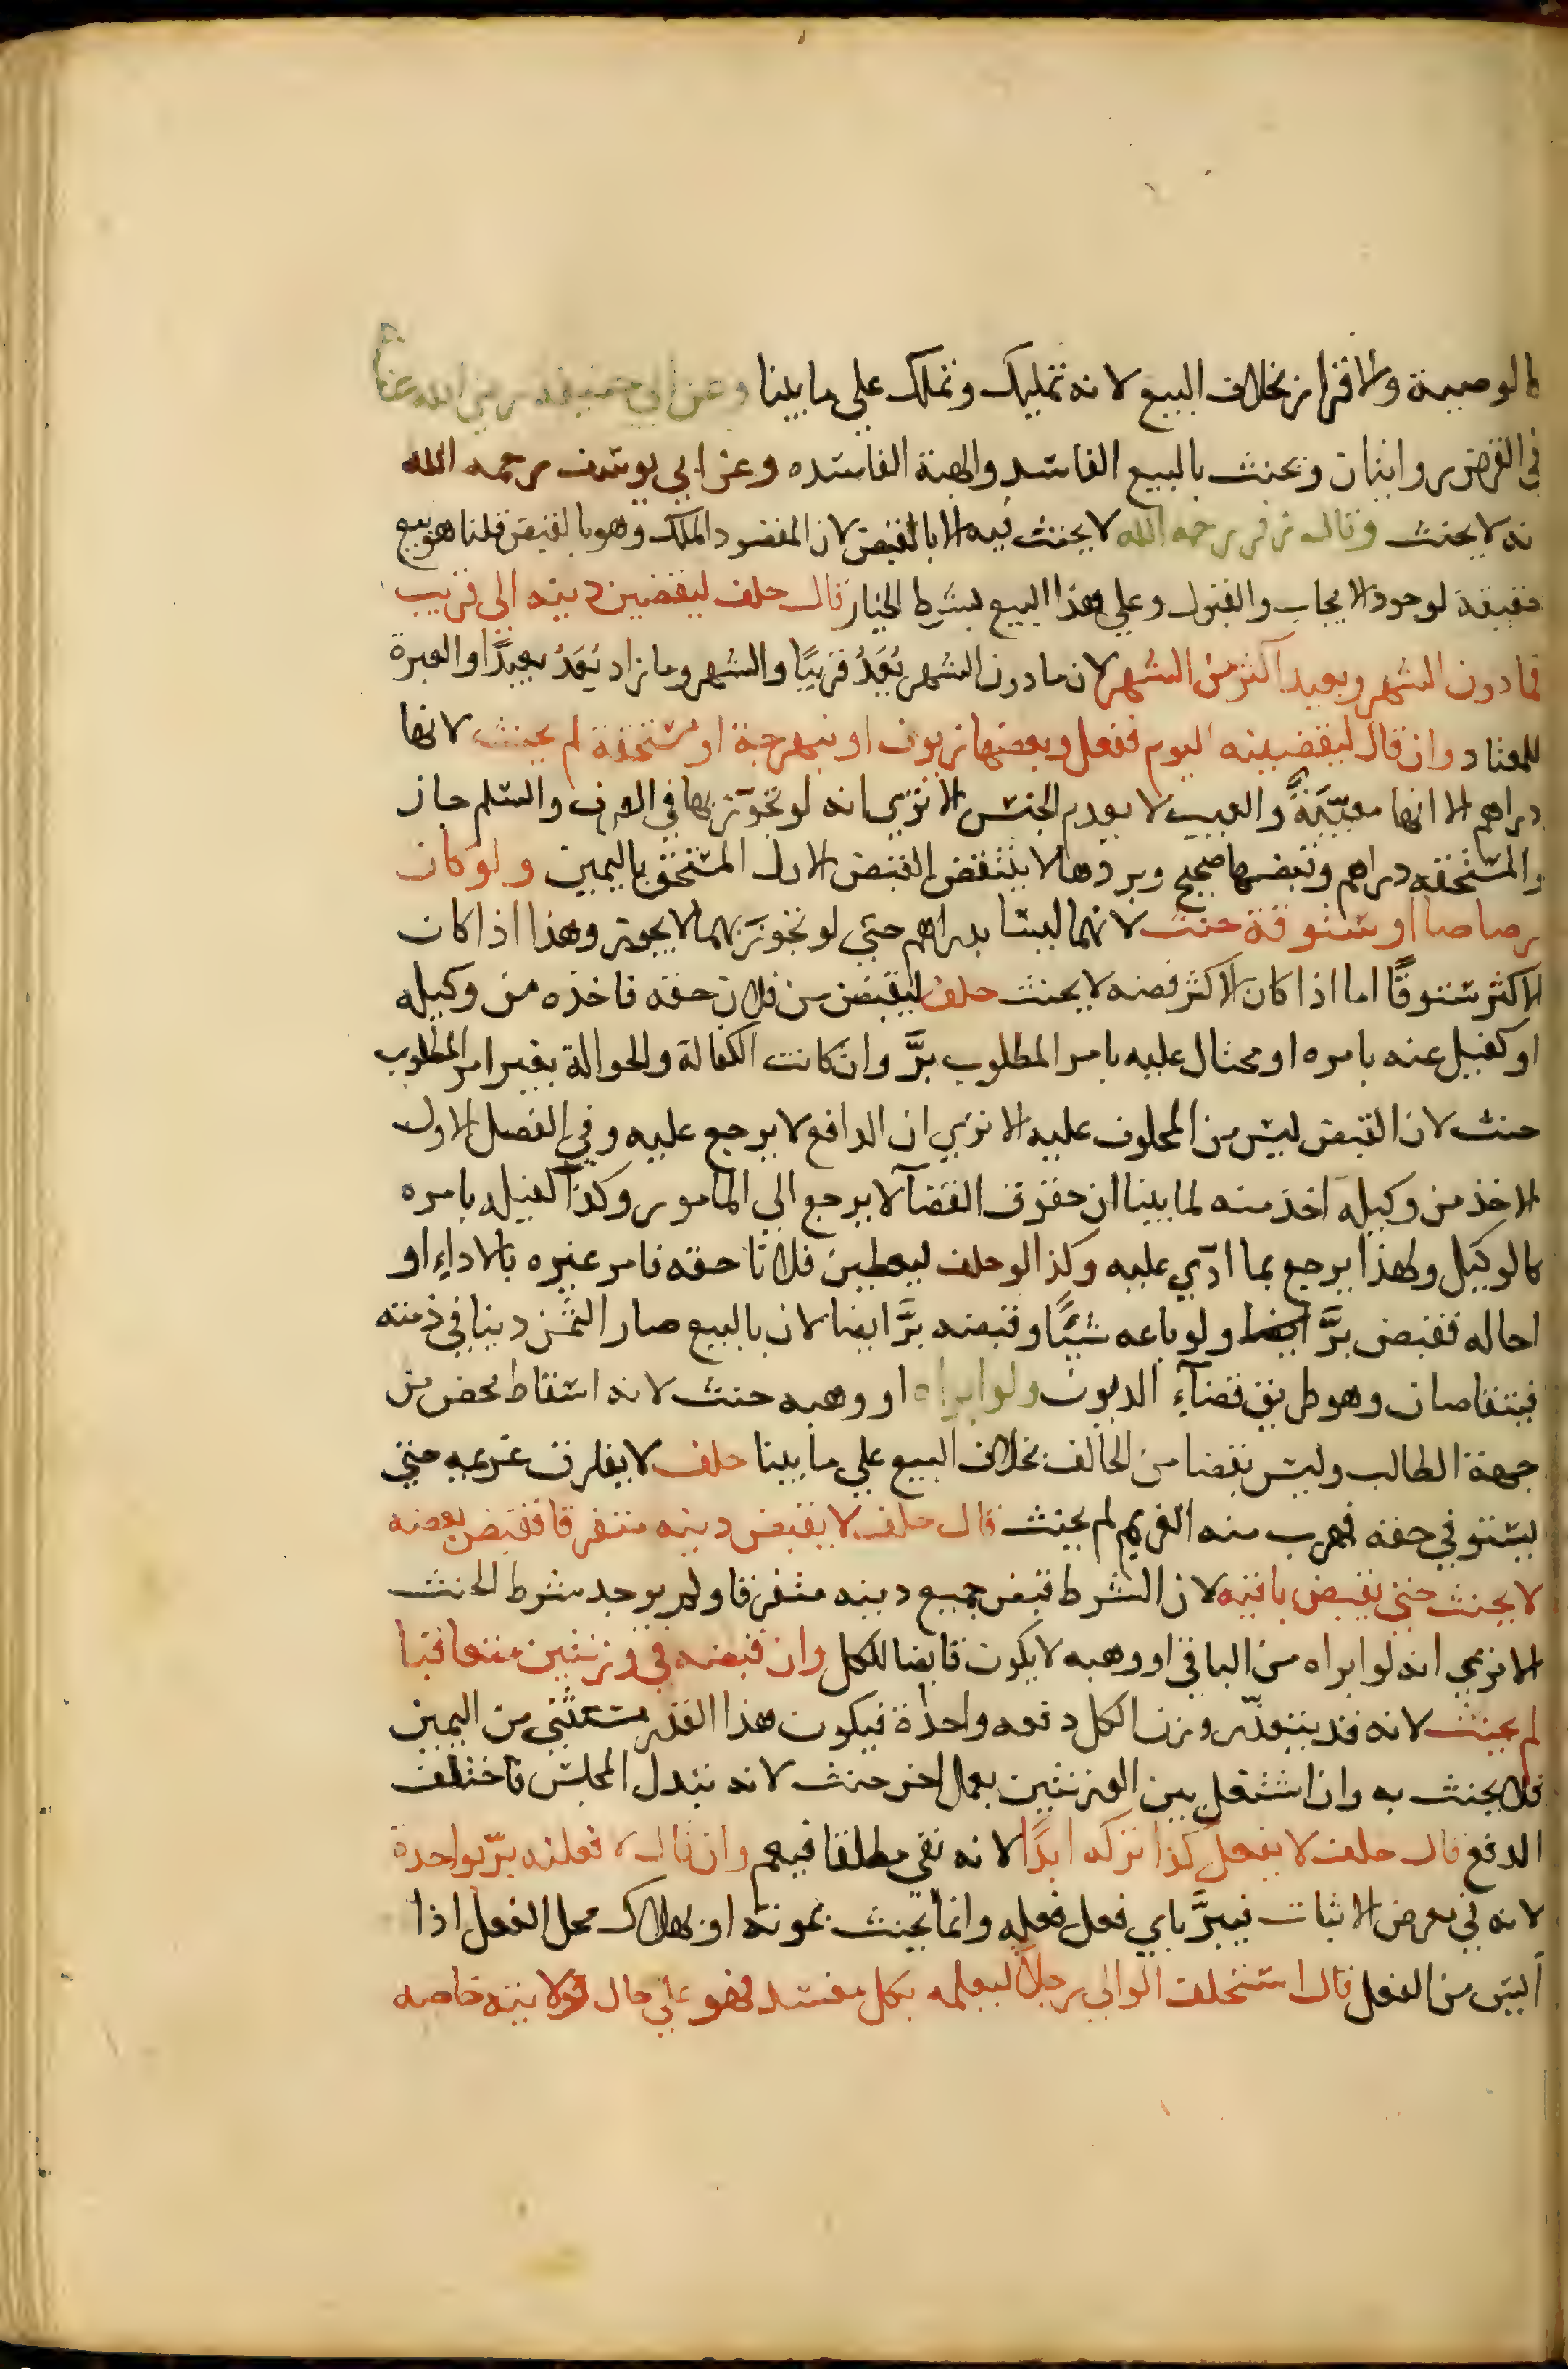 كالوصية والاقرار بخلاف البيع لانه تمليك وتملك علي ما بينا وعن ابي حنيفة رضي الله عنه
في القرض روايتان ويحنث بالبيع الفاسد والهبة الفاسده وعن ابي يوسف رحمه الله
نه لا يحنث وقال زفر رحمه الله لا يحنث فيه الا بالقبض لان المقصود الملك وهو بالقبض قلنا هو بيع
حقيقة لوجود الايجاب والقبول وعلي هذا البيع بشرط الخيار قال حلف ليقضين دينه الي قريب
فما دون الشهر وبعيد اكثر من الشهر لان ما دون الشهر يُعَدُ قريبًا والشهر وما زاد يُعَدُ بعيدًا والعبرة
للمعتاد وان قال ليقضينه اليوم ففعل وبعضها زيوف او نبهرجة او مستحقة لم يحنث لانها
دراهم الا انها معيّبَةً والعيب لا يعدم الجنس الا تري انه لو تجوّز بها في الصرف والسلم جاز
والمستحقه دراهم وقبضها صحيح وبردها لا ينتقض القبض الاول المستحق باليمين ولو كان
رصاصا او ستوقة حنث لانهما ليسا بدراهم حتي لو تجوزَ بهما لا يجوز وهذا اذا كان
الاكثر ستوقًا اما اذا كان الاكثر فضه لا يحنث حلف ليقبض من فلان حقه فاخذه من وكيله
او كفيل عنه بامره او محتال عليه بامر المطلوب برَّ وان كانت الكفالة والحوالة بغير امر المطلوب
حنث لان القبض ليس من المحلوف عليه الا تري ان الدافع لا يرجع عليه وفي الفصل الاول
الاخذ من وكيله اخذ منه لما بينا ان حقوق القضآ لا يرجع الي المامور وكذا كفيله بامره
كالوكيل ولهذا يرجع بما ادّي عليه وكذا لو حلف ليعطين فلانا حقه فامر غيره بالاداء او
احاله فقبض برَّ ايضا ولو باعه شيئًا وقبضه برَّ ايضا لان بالبيع صار الثمن دينا في ذمته
فيتقاصان وهو طريق قضآء الديون ولو ابراه او وهبه حنث لانه اسقاط محض من
جهة الطالب وليس بقضا من الحالف بخلاف البيع علي ما بينا حلف لا يفارق غريمه حتي
يستوفي حقه فهرب منه الغريم لم يحنث قال حلف لا يقبض دينه متفرقا فقبض بعضه
لا يحنث حتي يقبض باقيه لان الشرط قبض جميع دينه متفرقا ولم يوجد شرط الحنث
الا تري انه لو ابراه من الباقي او وهبه لا يكون قابضا للكل وان قبضه في وزنتين متعاقبا
لم يحنث لانه قد يتعذّر وزن الكل دفعه واحدة فيكون هذا القدر مستثني من اليمين
فلا يحنث به وان اشتغل بين الوزنتين بعمل اخر حنث لانه تبدل المجلس فاختلف
الدفع قال حلف لا يفعل كذا تركه ابدًا لانه نفي مطلقا فيعم وان قال لافعلنه برّ بواحدة
لانه في معرض الاثبات فيبرَّ باي فعل فعله وانما يحنث بموته او بهلاك محل الفعل اذا
أيس من الفعل قال استحلف الوالي رجلاً ليعلمه بكل مفسد فهو علي حال ولايته خاصه